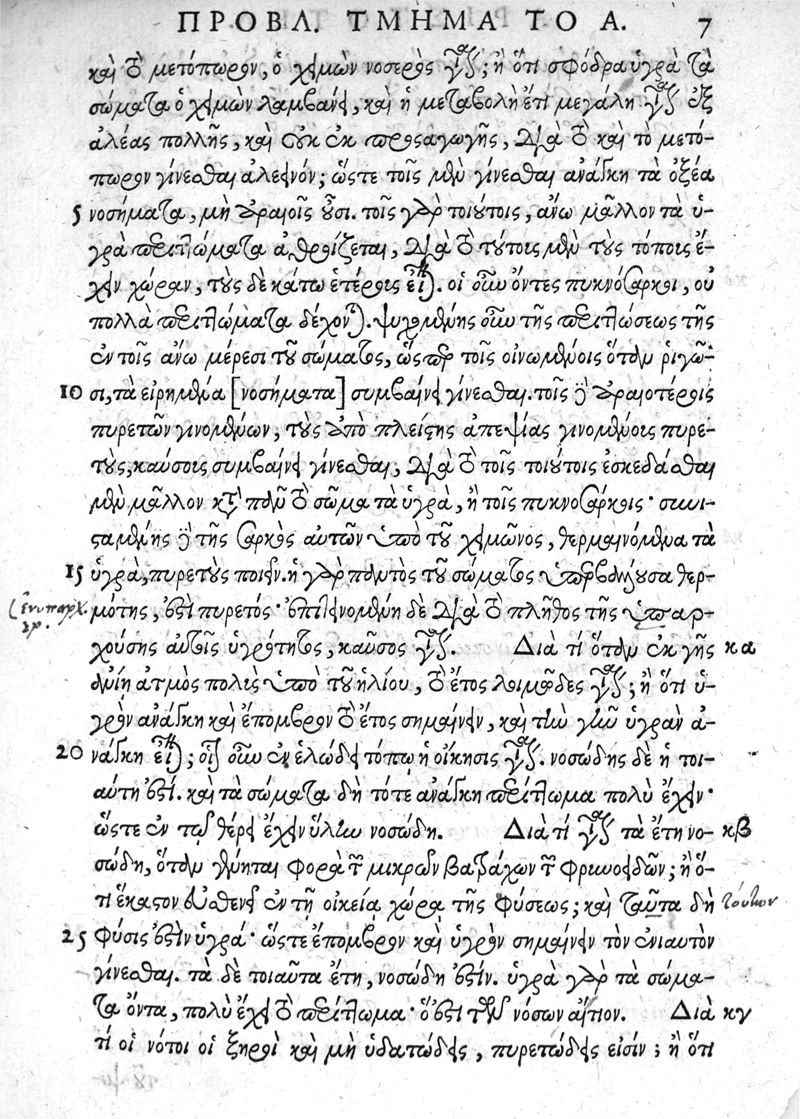 ΠΡΟΒΛ. ΤΜΗΜΑ ΤΟ Α. 7
καὶ τὸ μετόπωρον, ὁ χειμὼν νοσερὸς γίνεται; ἢ ὅτι σφόδρα ὑγρὰ τὰ
σώματα ὁ χειμὼν λαμβάνει, καὶ ἡ μεταβολὴ ἔτι μεγάλη γίνεται ἐξ
ἀλέας πολλῆς, καὶ οὐκ ἐκ προσαγωγῆς, διὰ τὸ καὶ τὸ μετό-
πωρον γίνεσθαι ἀλεεινόν; ὥστε τοῖς μὲν γίνεσθαι ἀνάγκη τὰ ὀξέα
5 νοσήματα, μὴ ἀραιοῖς οὖσι. τοῖς γὰρ τοιούτοις, ἄνω μᾶλλον τὰ ὑ-
γρὰ περιττώματα ἀθροίζεται, διὰ τὸ τούτοις μὲν τοὺς τόποις ἔ-
χειν χώραν, τοὺς δὲ κάτω ἑτέροις εἶναι. οἱ οὖν ὄντες πυκνόσαρκοι, οὐ
πολλὰ περιττώματα δέχονται. ψυχομένης οὖν τῆς περιττώσεως τῆς
ἐν τοῖς ἄνω μέρεσι τοῦ σώματος, ὥσπερ τοῖς οἰνωμένοις ὅταν ῥιγῶ-
10 σι, τὰ εἰρημένα [νοσήματα] συμβαίνει γίνεσθαι. τοῖς δὲ ἀραιοτέροις
πυρετῶν γινομένων, τοὺς ἀπὸ πλείστης ἀπεψίας γινομένους πυρε-
τοὺς, καύσοις συμβαίνει γίνεσθαι, διὰ τὸ τοῖς τοιούτοις ἐσκεδάσθαι
μὲν μᾶλλον κατὰ πᾶν τὸ σῶμα τὰ ὑγρὰ, ἢ τοῖς πυκνοσάρκοις· συνι-
σταμένης δὲ τῆς σαρκὸς αὐτῶν ὑπὸ τοῦ χειμῶνος, θερμαινόμενα τὰ
15 ὑγρὰ, πυρετοὺς ποιεῖν. ἡ γὰρ παντὸς τοῦ σώματος ὑπερβάλλουσα θερ-
μότης, ἐστὶ πυρετός· ἐπιτεινομένη δὲ διὰ τὸ πλῆθος τῆς ὑπαρ-
χούσης αὐτοῖς ὑγρότητος, καῦσος γίνεται. Διὰ τί ὅταν ἐκ γῆς κα
ἀνίῃ ἀτμὸς πολὺς ὑπὸ τοῦ ἡλίου, τὸ ἔτος λοιμῶδες γίνεται; ἢ ὅτι ὑ-
γρὸν ἀνάγκη καὶ ἔπομβρον τὸ ἔτος σημαίνειν, καὶ τὴν γῆν ὑγρὰν ἀ-
20 νάγκη εἶναι; οἷον οὖν ἐν ἑλώδει τόπῳ ἡ οἴκησις γίνεται. νοσώδης δὲ ἡ τοι-
αύτη ἐστί. καὶ τὰ σώματα δὴ τότε ἀνάγκη περίττωμα πολὺ ἔχειν·
ὥστε ἐν τῷ θέρει ἔχειν ὕλην νοσώδη. Διὰ τί γίνεται τὰ ἔτη νο- κβ
σώδη, ὅταν γένηται φορὰ τῶν μικρῶν βατράχων τῶν φρυνοειδῶν; ἢ ὅ-
τι ἕκαστον εὐθενεῖ ἐν τῇ οἰκείᾳ χώρᾳ τῆς φύσεως; καὶ ταῦτα δὴ τούτων
25 φύσις ἐστὶν ὑγρά· ὥστε ἔπομβρον καὶ ὑγρὸν σημαίνειν τὸν ἐνιαυτὸν
γίνεσθαι. τὰ δὲ τοιαῦτα ἔτη, νοσώδη ἐστίν. ὑγρὰ γὰρ τὰ σώμα-
τα ὄντα, πολὺ ἔχει τὸ περίττωμα· ὅ ἐστι τῶν νόσων αἴτιον. Διὰ κγ
τί οἱ νότοι οἱ ξηροὶ καὶ μὴ ὑδατώδεις, πυρετώδεις εἰσίν; ἢ ὅτι
(ἐνυπαρχ.
γρ.